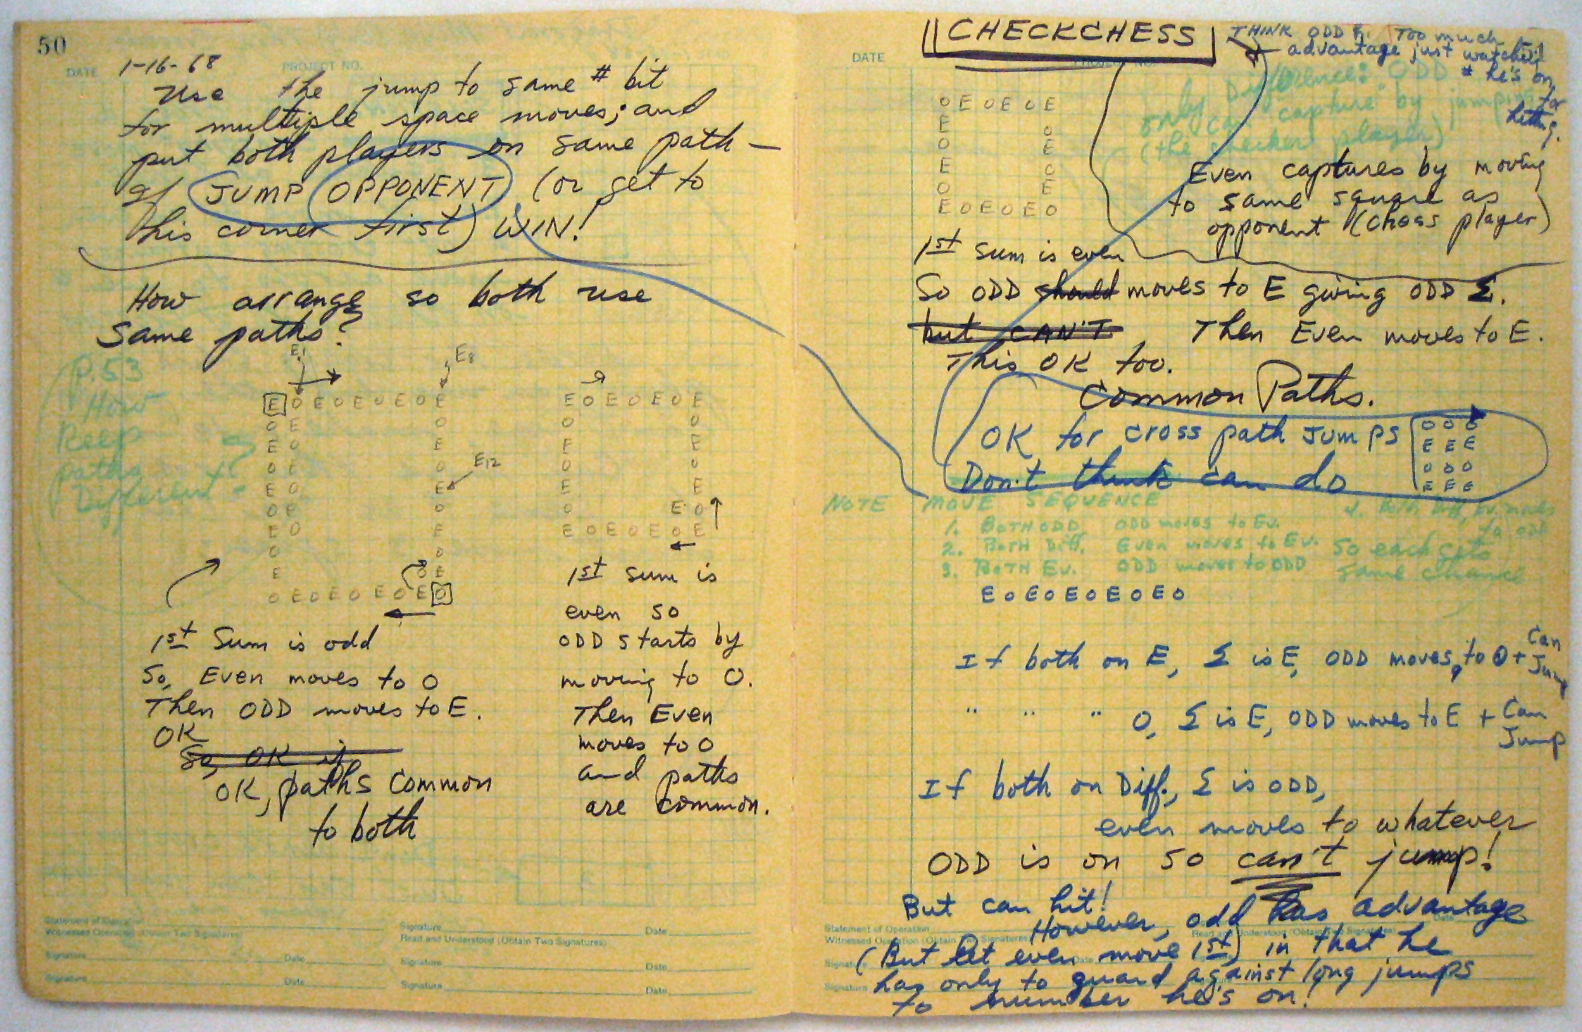 50
DATE
1-16-68
PROJECT NO.
Use the jump to same # bit
for multiple space moves; and
put both players on same path —
If JUMP OPPONENT (or get to
his corner first) WIN!
How arrange so both use
Same paths?
P.53
How
Keep
paths
Different?
E1
E8
E O E O E O O E
E12
E O E O E O E
1st Sum is odd
So, Even moves to O
Then ODD moves to E.
OK
So, OK if
OK, paths common
to both
1st sum is
even so
ODD starts by
moving to O.
Then Even
moves to O
and paths
are common.
Statement of Operation
Witnessed Operation (Obtain Two Signatures)
Signature Date
Signature Date
Signature Date
Read and Understood (Obtain Two Signatures)
Signature Date
Signature Date
CHECKCHESS
DATE
THINK ODD has Too much
advantage just watches
# he's on
for
hitting.
51
Difference: ODD
only can capture by jumping
(the checker player)
O E O E E
E
O O
O E
E O
O E
E O E O E O
Even captures by moving
to same square as
opponent (chess player)
1st sum is even
So ODD should moves to E giving ODD Σ.
but CAN'T Then Even moves to E.
This OK too.
Common Paths.
OK for cross path JUMPS
Don't think can do
O O O
E E E
O O O
E E E
NOTE MOVE SEQUENCE
1. BOTH ODD ODD moves to Ev.
2. BOTH Diff. Even moves to Ev.
3. BOTH Ev. ODD moves to ODD
4. Both Diff, Ev. moves
to odd
So each gets
same chance
E O E O E O E O E O
If both on E, Σ is E, ODD moves to O + Can
Jump
" " " O, Σ is E, ODD moves to E + Can
Jump
If both on Diff., Σ is ODD,
even moves to whatever
ODD is on so can't jump!
But can hit!
However, odd has advantage
(But let even move 1st) in that he
has only to guard against long jumps
to number he's on!
Statement of Operation
Witnessed Operation (Obtain Two Signatures)
Read and Understood (Obtain Two Signatures)
Signature
Signature